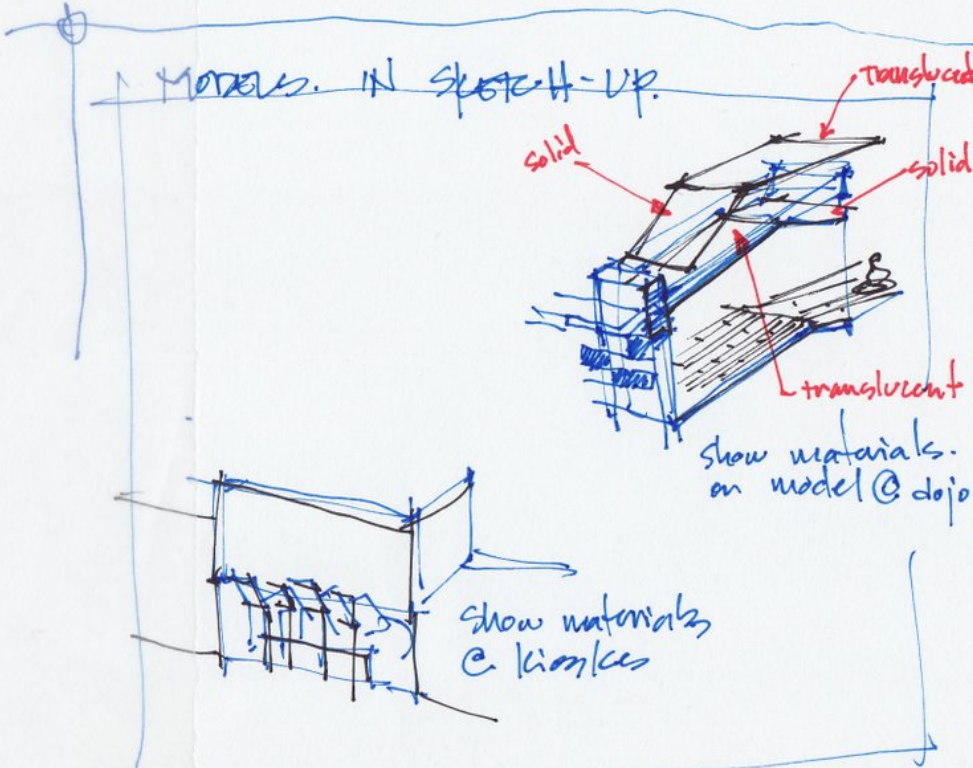 MODELS. IN SKETCH-UP.
translucent
solid
solid
translucent
show materials.
on model @ dojo
show materials
@ kioskes